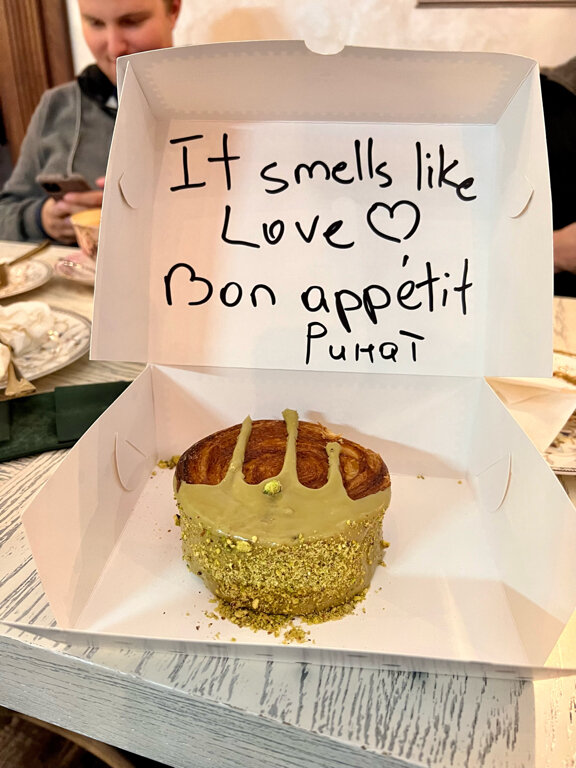 It smells like
Love ♡
Bon appétit
Ринат